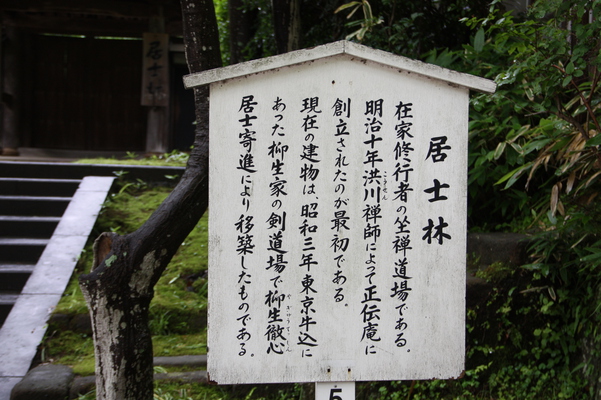 居士林
在家修行者の坐禅道場である。
明治十年洪川禅師によって正伝庵に
こうせん
創立されたのが最初である。
現在の建物は、昭和三年東京牛込に
あった柳生家の剣道場で柳生徹心
やぎゅうてっしん
居士寄進により移築したものである。
居士林
5